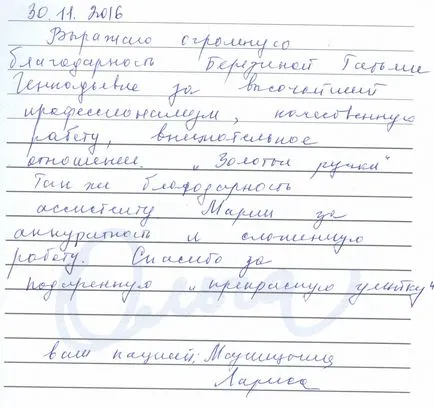 30.11.2016
Выражаю огромную
благодарность Березиной Татьяне
Геннадьевне за высочайший
профессионализм, качественную
работу, внимательное
отношение. "Золотые ручки"
Так же благодарность
ассистенту Марии за
аккуратность и слаженную
работу. Спасибо за
подаренную "прекрасную улыбку"
Ольга
ваш пациент:
Лариса